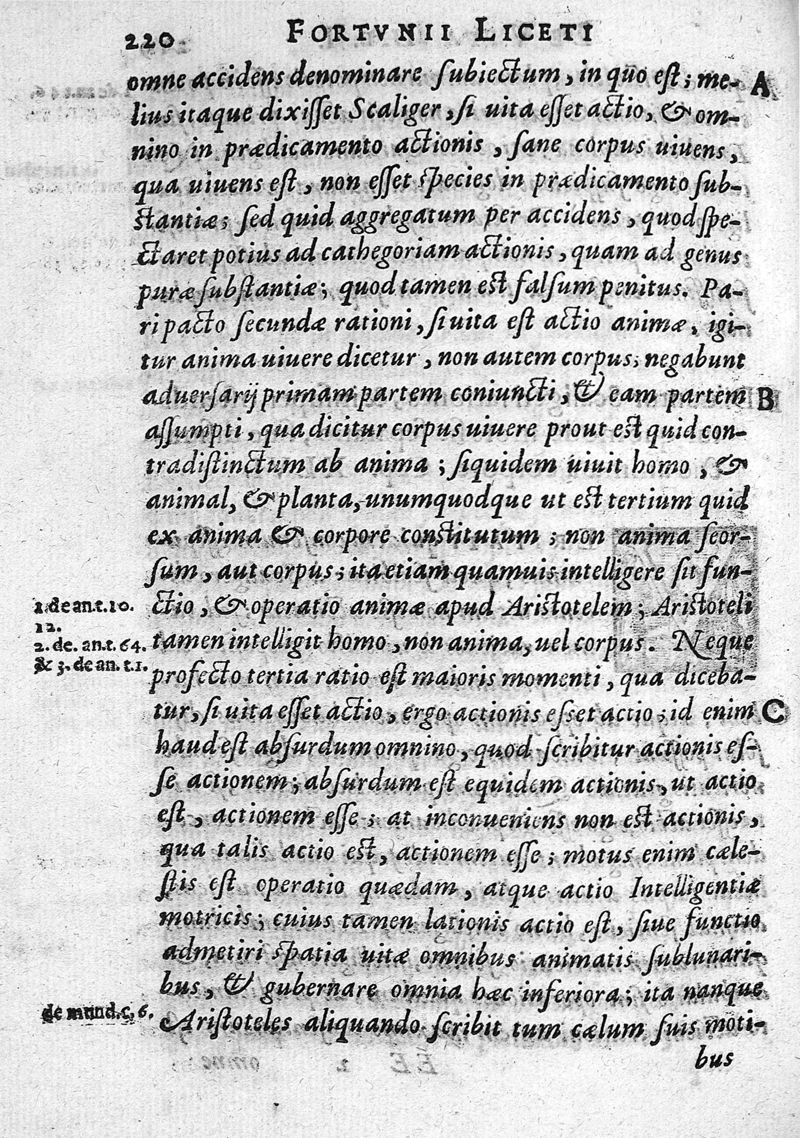 220 FORTVNII LICETI
omne accidens denominare subiectum, in quo est; me- A
lius itaque dixisset Scaliger, si uita esset actio, & om-
nino in prædicamento actionis, sane corpus uiuens,
qua uiuens est, non esset species in prædicamento sub-
stantiæ; sed quid aggregatum per accidens, quod spe-
ctaret potius ad cathegoriam actionis, quam ad genus
puræ substantiæ; quod tamen est falsum penitus. Pa-
ri pacto secundæ rationi, si uita est actio animæ, igi-
tur anima uiuere dicetur, non autem corpus; negabunt
aduersarij primam partem coniuncti, & eam partem B
assumpti, qua dicitur corpus uiuere prout est quid con-
tradistinctum ab anima; siquidem uiuit homo, &
animal, & planta, unumquodque ut est tertium quid
ex anima & corpore constitutum; non anima seor-
sum, aut corpus; ita etiam quamuis intelligere sit fun-
1. de an. t. 10. ctio, & operatio animæ apud Aristotelem; Aristoteli
12.
2. de. an. t. 64. tamen intelligit homo, non anima, uel corpus. Neque
& 3. de an. t. 1. profecto tertia ratio est maioris momenti, qua diceba-
tur, si uita esset actio, ergo actionis esset actio; id enim C
haud est absurdum omnino, quod scribitur actionis es-
se actionem; absurdum est equidem actionis, ut actio
est, actionem esse; at inconueniens non est actionis,
qua talis actio est, actionem esse; motus enim cæle-
stis est operatio quædam, atque actio Intelligentiæ
motricis; cuius tamen lationis actio est, siue functio
admetiri spatia uitæ omnibus animatis sublunari-
bus, & gubernare omnia hæc inferiora; ita nanque
de mund. c. 6. Aristoteles aliquando scribit tum cælum suis moti-
bus